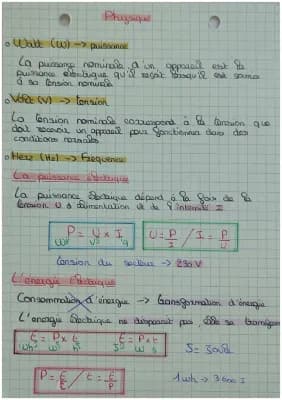 Physique
Watt (W) → puissance
La puissance nominale d'un appareil est la
puissance électrique qu'il reçoit lorsqu'il est soumis
à sa tension nominale
Volt (V) → tension
La tension nominale correspond à la tension que
doit recevoir un appareil pour fonctionner dans des
conditions normales
Herz (Hz) → Fréquence
La puissance électrique
La puissance électrique dépend à la fois de la
tension U d'alimentation et de l'intensité I
P = U × I U = P/I / I = P/U
W V A
tension du secteur → 230 V
L'énergie électrique
Consommation d'énergie → transformation d'énergie
L'énergie électrique ne disparait pas, elle se transforme
E = P × t E = P × t
Wh W h J W s
J = Joule
P = E/t / t = E/P
1 Wh → 3600 J